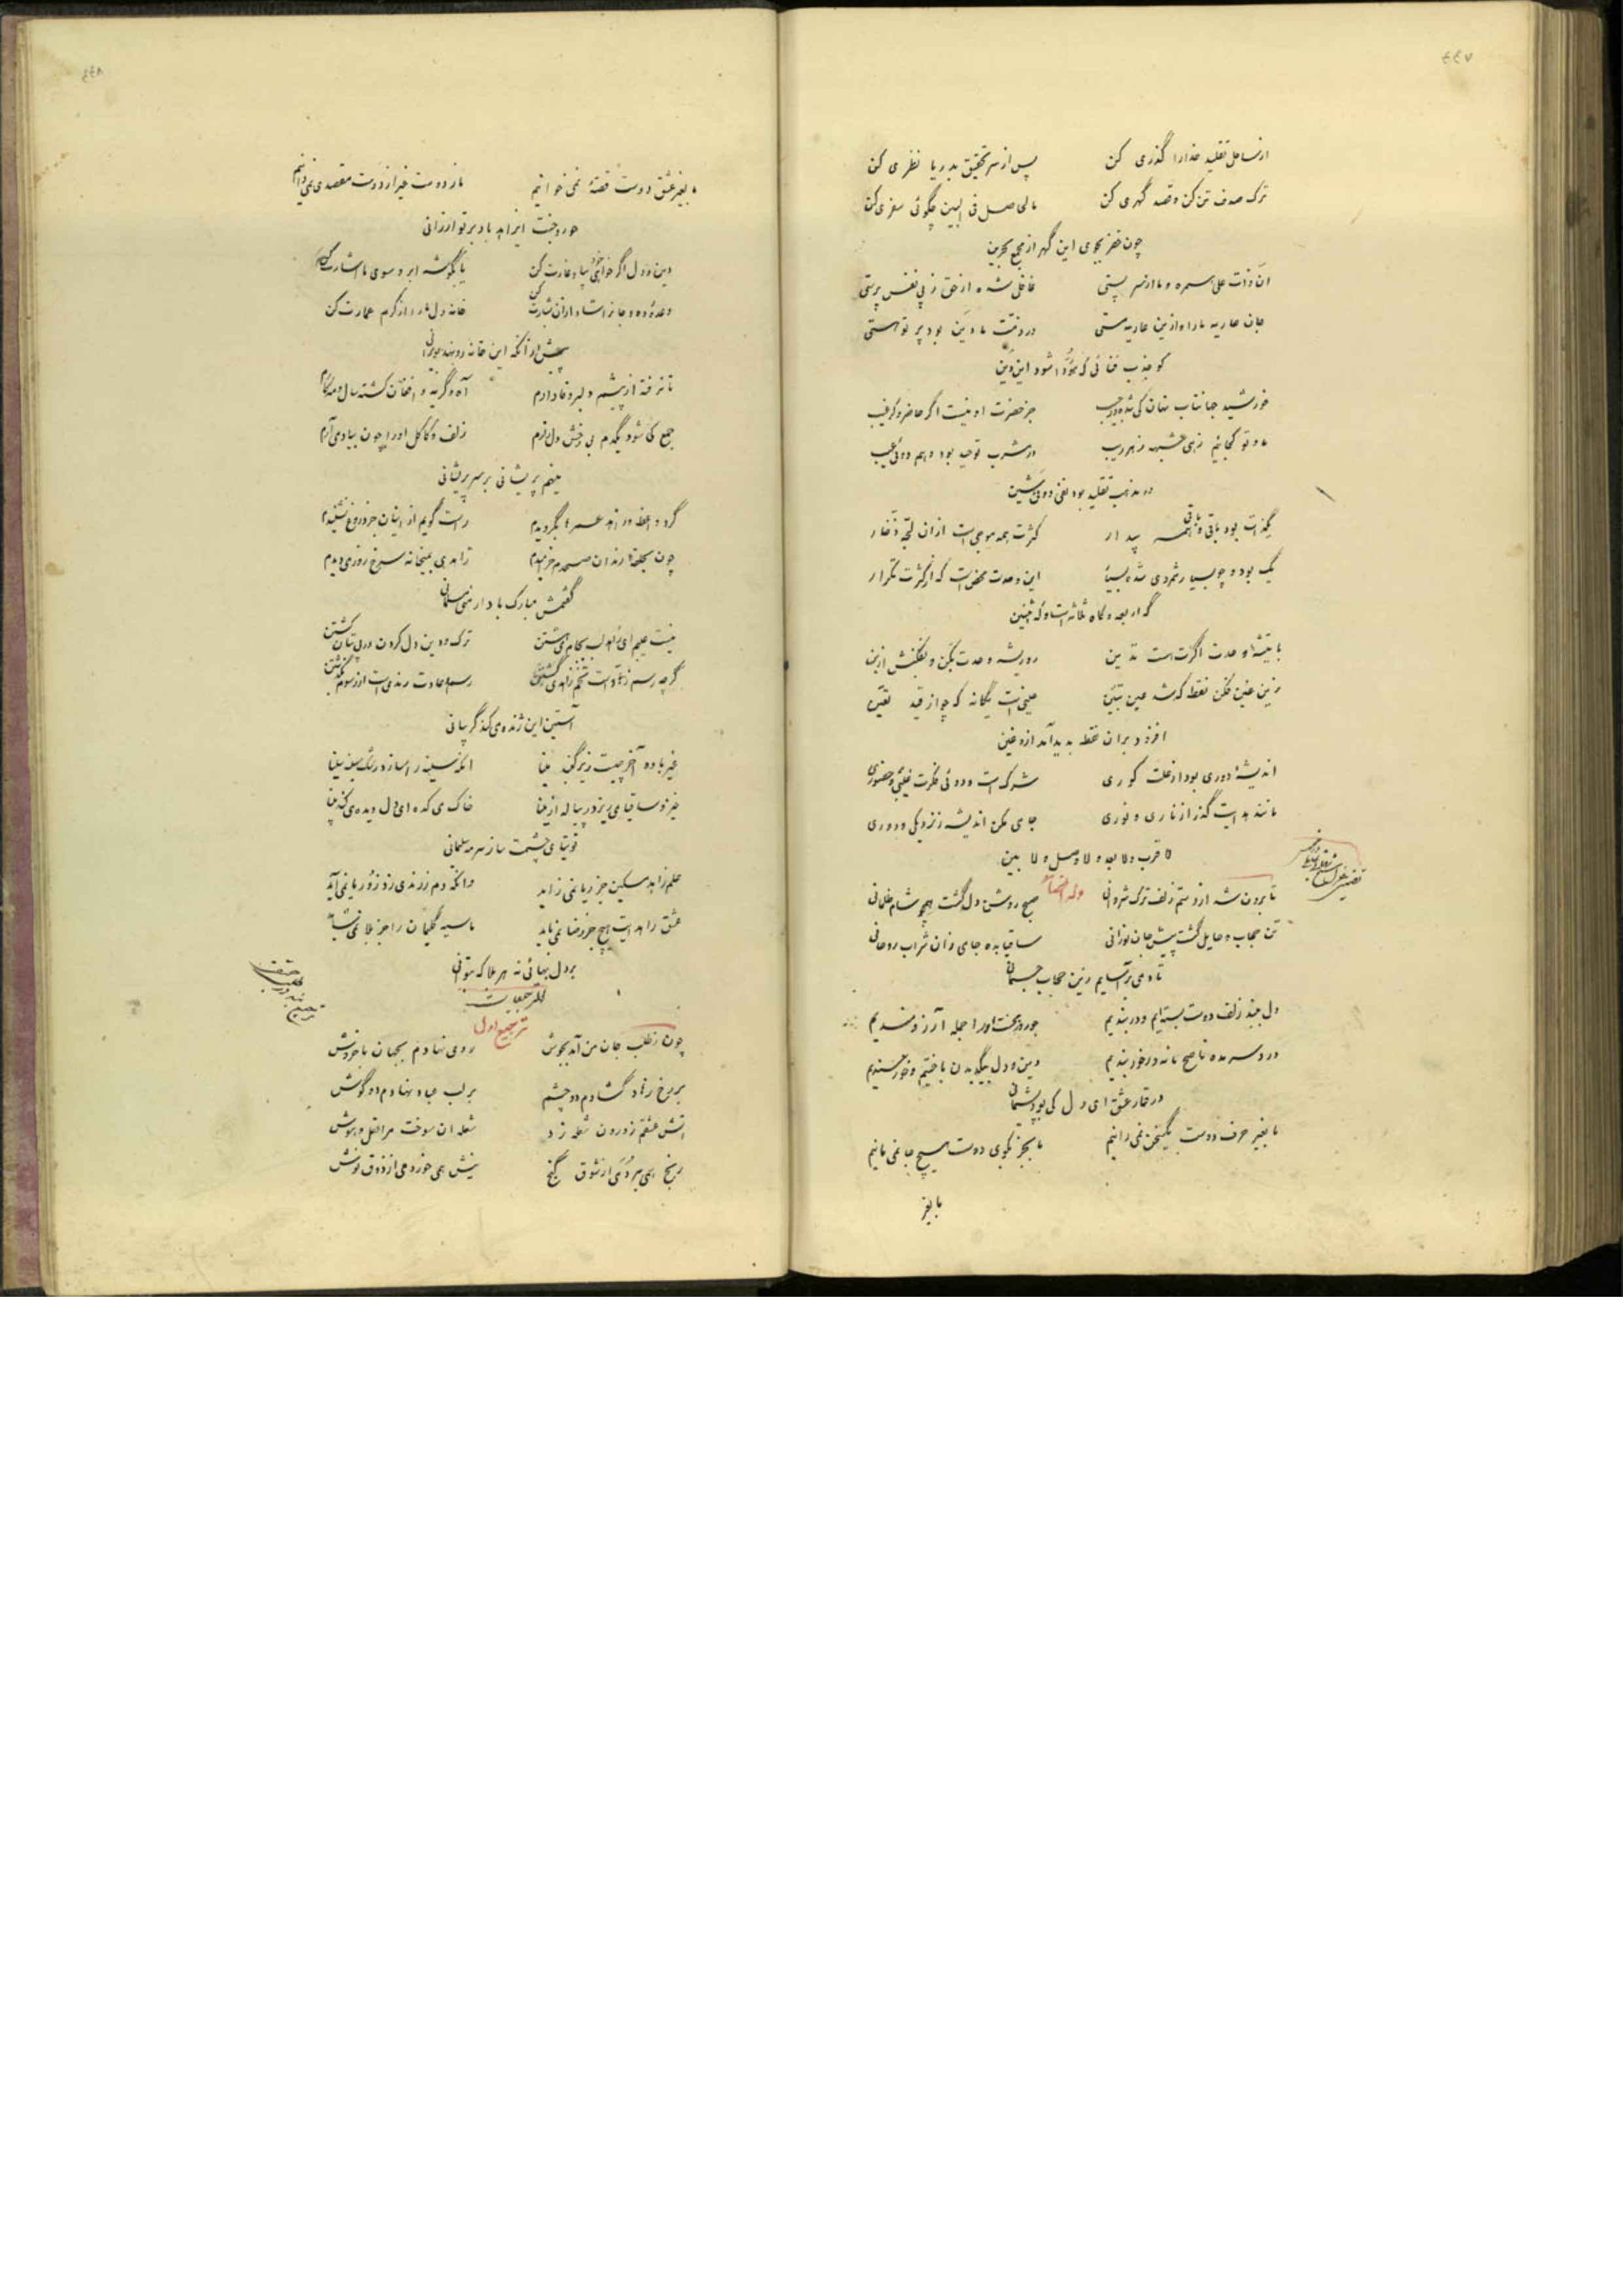 ۴۴۷
از ساحل تقلید خدارا گذری کن پس از سر تحقیق بدریا نظری کن
ترک صدف تن کن و قصد گهری کن مالی صل فی البین چگوئی سفری کن
چون خضر بجوی این گهر از مجمع بحرین
ان ذات علی سمره و ما از سر پستی غافل شده از حق ز پی نفس پرستی
جان عاریه مارا و ازین عاریه مستی در ذمت ما دین بود پر تو هستی
کو جذب فنائی که شود این دین
خورشید جهانتاب نهان کی شده در جیب جز حضرت او نیست اگر حاضر و گر غیب
ما و تو کجائیم زهی شبهه زهی ریب در مشرب توحید بود وهم دوئی عیب
در مذهب تقلید بود نفی دوئی شین
یکذات بود باقی و فانی همه پندار کثرت همه موجی است ازان لجه ذخار
یک بود و چو بسیار شمردی شده بسیار این وحدت محض است که از کثرت تکرار
گه اربعه و گاه ثلاثه است و گه اثنین
با تیشه وحدت اگرت هست تدین رو ریشه وحدت بکن و بفکنش از بن
زین غین فکن نقطه که شد عین تبین عینی است یگانه که چو از قید تعین
افزود بران نقطه پدید آمد ازو غین
اندیشه دوری بود از علت کوری شرک است و دوئی فکرت غیبی و حضوری
مانند هدایت گذر از ناری و نوری جامی مکن اندیشه ز نزدیکی و دوری
لا قرب ولا بعد و لا وصل و لا بین
وله ایضا
تا برون شد از دستم زلف ترک شروانی صبح روشن دل گشت همچو شام ظلمانی
تن حجاب و حایل گشت پیش جان نورانی ساقیا بده جامی زان شراب روحانی
تا دمی برآسایم زین حجاب جسمانی
دل ببند زلف دوست بسته‌ایم و در بندیم جور و رنج و محنت او را جمله آرزومندیم
درد سر مده ناصح ما نه در خور پندیم دین و دل بیک دیدن باختیم و خرسندیم
در قمار عشق ای دل کی بود پشیمانی
ما بغیر حرف دوست یک سخن نمی‌رانیم ما بجز بکوی دوست هیچ جا نمی مانیم
ما بغیر
۴۴۸
ما بغیر عشق دوست قصهٔ نمی خوانیم ما ز دوست غیر از دوست مقصدی نمی دانیم
حور و جنت ای زاهد باد بر تو ارزانی
دین و دل اگر خواهی خود بیا و غارت کن یا بگوشه ابرو سوی ما اشارت کن
وعدهٔ ده و جانرا شاد ازان بشارت کن خانه دل مارا از کرم عمارت کن
پیش از آنکه این خانه رو نهد بویرانی
تا نرفته از پیشم دلبر وفادارم آه و گریه و افغان گشته سال و مه کارم
جمع کی شود یکدم بی رخش دل زارم زلف و کاکل اورا چون بیاد می آرم
می نهم پریشانی بر سر پریشانی
گرد واعظ و زاهد عمرها بگردیدم راست گویم از اینان جز دروغ نشنیدم
چون بحلقه رندان صبحدم خرامیدم زاهدی بمیخانه سرخ رو ز می دیدم
گفتمش مبارک باد ارمنی مسلمانی
نیست عیبم ای زاهد لب بجام می هشتن ترک و دین دل کردن در پی بتان گشتن
گرچه رسم زهاد است تخم زاهدی کشتن رسم و عادت رندی است از رسوم بگذشتن
آستین این ژنده می کند گریبانی
غیر باده آخر چیست زیر گنبد مینا آنکه سینه را سازد رشک سینه سینا
خیز و ساقیا می ریز در پیاله از مینا خاک میکده ای دل دیده می کند بینا
توتیای چشمت ساز سرمه سلیمانی
علم زاهد مسکین جز ریا نمی زاید وانکه دم زند رندی زو ز ور یا نمی آید
عشق را هدایت هیچ جز وفا نمی باید ما سیه گلیمان را جز بلا نمی شاید
بر دل بهائی نه هر بلا که بتوانی
ترجیعات
ترجیع اول
چون ز طلب جان من آمد بجوش روی نهادم بجهان با خروش
بر رخ زهاد گشادم دو چشم بر لب عباد نهادم دو گوش
آتش عشقم ز درون شعله زد شعله آن سوخت مرا عقل و هوش
رنج همی بردم از شوق گنج نیش همی خوردمی از ذوق نوش